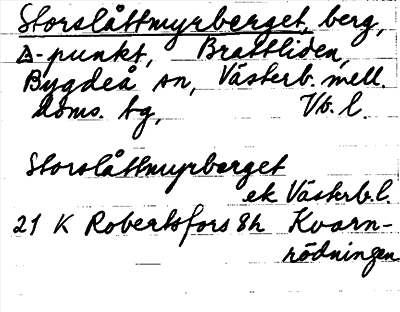 Storslåttmyrberget, berg,
Δ-punkt, Brattliden,
Bygdeå sn, Västerb. mell.
doms. tg, Vb. l.
Storslåttmyrberget
ek Västerb.l.
21 K Robertsfors 8h Kvarn-
rödningen